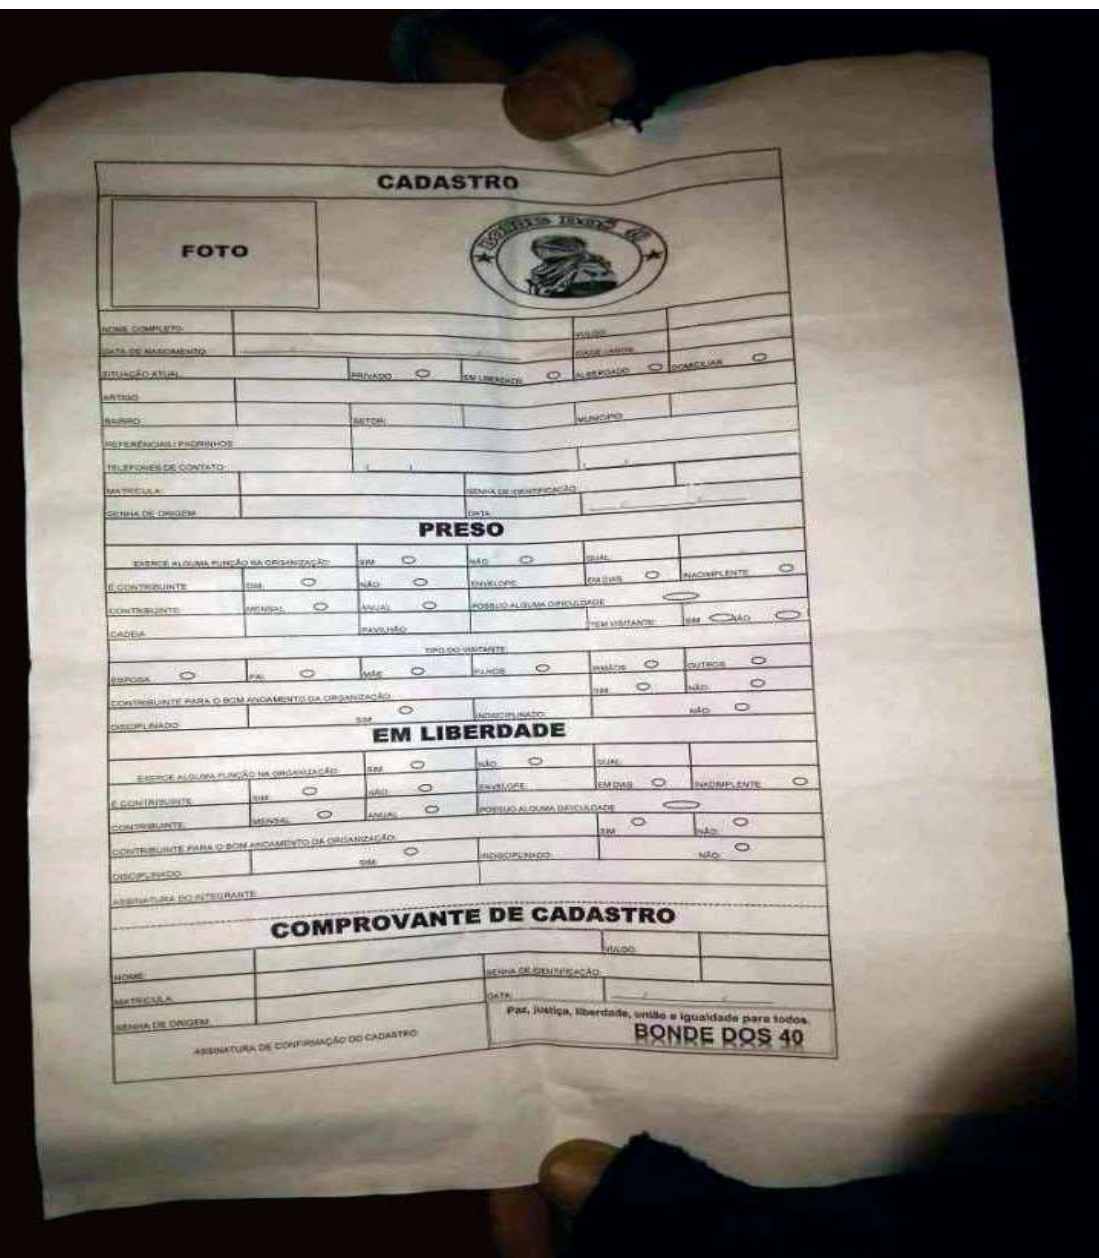 CADASTRO
FOTO
BONDE DOS 40
NOME COMPLETO: VULGO:
DATA DE NASCIMENTO:
SITUAÇÃO ATUAL: PRIVADO EM LIBERDADE: ALBERGADO DOMICILIAR
ARTIGO:
BAIRRO: SETOR: MUNICÍPIO:
REFERÊNCIAS / PADRINHOS
TELEFONES DE CONTATO:
MATRÍCULA: SENHA DE IDENTIFICAÇÃO:
SENHA DE ORIGEM: DATA:
PRESO
EXERCE ALGUMA FUNÇÃO NA ORGANIZAÇÃO: SIM NÃO QUAL:
É CONTRIBUINTE SIM: NÃO ENVELOPE: EM DIAS INADIMPLENTE
CONTRIBUINTE: MENSAL ANUAL POSSUO ALGUMA DIFICULDADE
CADEIA: PAVILHÃO: TEM VISITANTE: SIM NÃO
TIPO DO VISITANTE:
ESPOSA PAI MÃE FILHOS IRMÃOS OUTROS
CONTRIBUINTE PARA O BOM ANDAMENTO DA ORGANIZAÇÃO: SIM NÃO
DISCIPLINADO SIM INDISCIPLINADO: NÃO
EM LIBERDADE
EXERCE ALGUMA FUNÇÃO NA ORGANIZAÇÃO: SIM NÃO QUAL:
É CONTRIBUINTE SIM NÃO ENVELOPE: EM DIAS INADIMPLENTE
CONTRIBUINTE: MENSAL ANUAL POSSUO ALGUMA DIFICULDADE
CONTRIBUINTE PARA O BOM ANDAMENTO DA ORGANIZAÇÃO: SIM NÃO
DISCIPLINADO SIM INDISCIPLINADO: NÃO
ASSINATURA DO INTEGRANTE:
COMPROVANTE DE CADASTRO
NOME: VULGO:
MATRÍCULA: SENHA DE IDENTIFICAÇÃO:
SENHA DE ORIGEM: DATA:
ASSINATURA DE CONFIRMAÇÃO DO CADASTRO
Paz, justiça, liberdade, união e igualdade para todos.
BONDE DOS 40